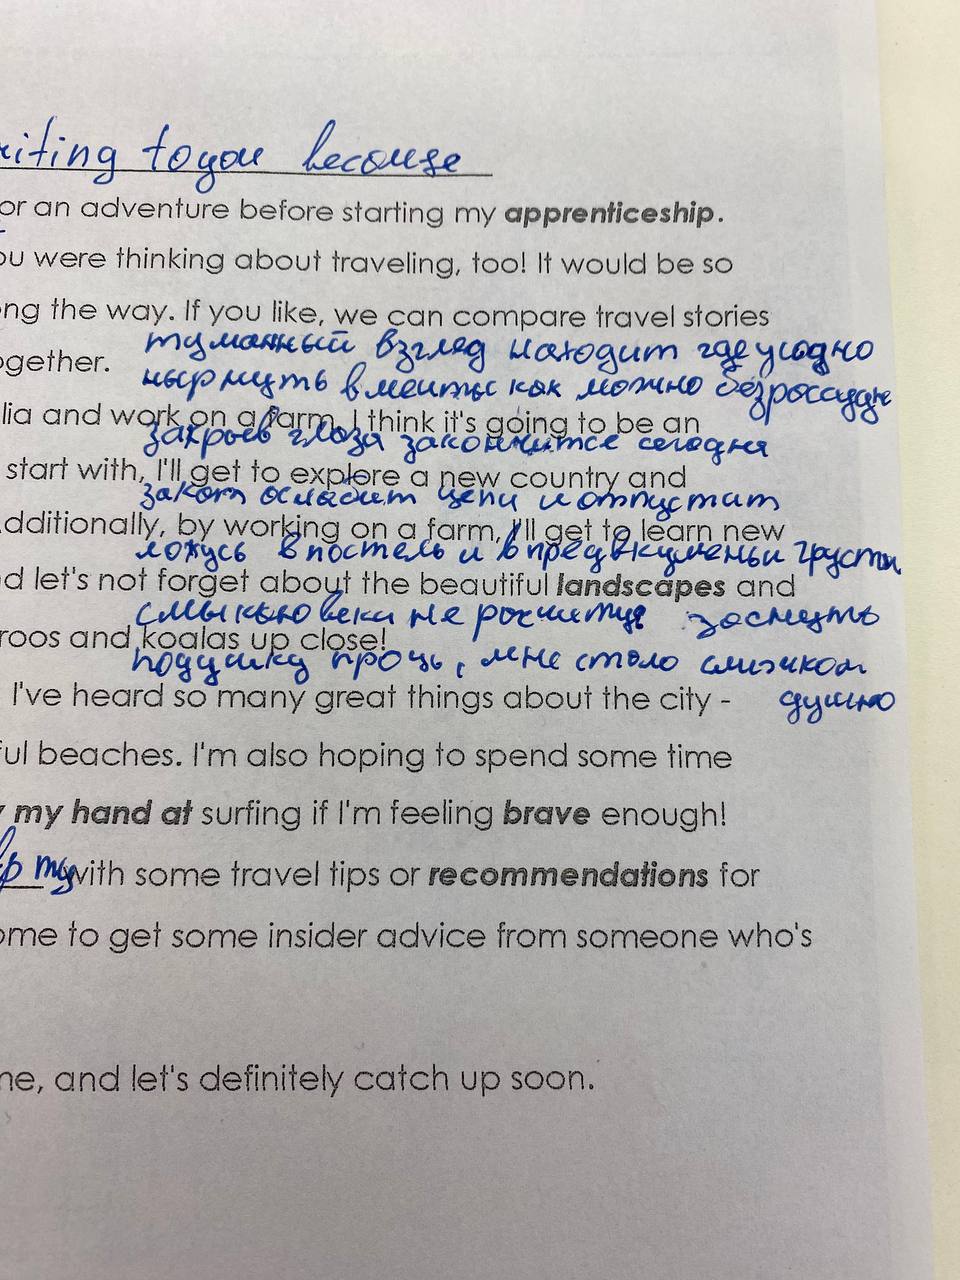 riting to you because
or an adventure before starting my apprenticeship.
ou were thinking about traveling, too! It would be so
ong the way. If you like, we can compare travel stories
туманный взгляд находит где угодно
ogether.
нырнуть в менты как можно безрассудн
lia and work on a farm. I think it's going to be an
закрыв глаза закончится сегодня
start with, I'll get to explore a new country and
закат ослабит цепи и отпустит
Additionally, by working on a farm, I'll get to learn new
ложусь в постель и в предвкушеньи грусти
d let's not forget about the beautiful landscapes and
смыкаю веки не рассчитуя заснуть
roos and koalas up close!
подушку прочь, мне стало слишком
I've heard so many great things about the city - душно
ful beaches. I'm also hoping to spend some time
y my hand at surfing if I'm feeling brave enough!
lp my with some travel tips or recommendations for
ome to get some insider advice from someone who's
ne, and let's definitely catch up soon.